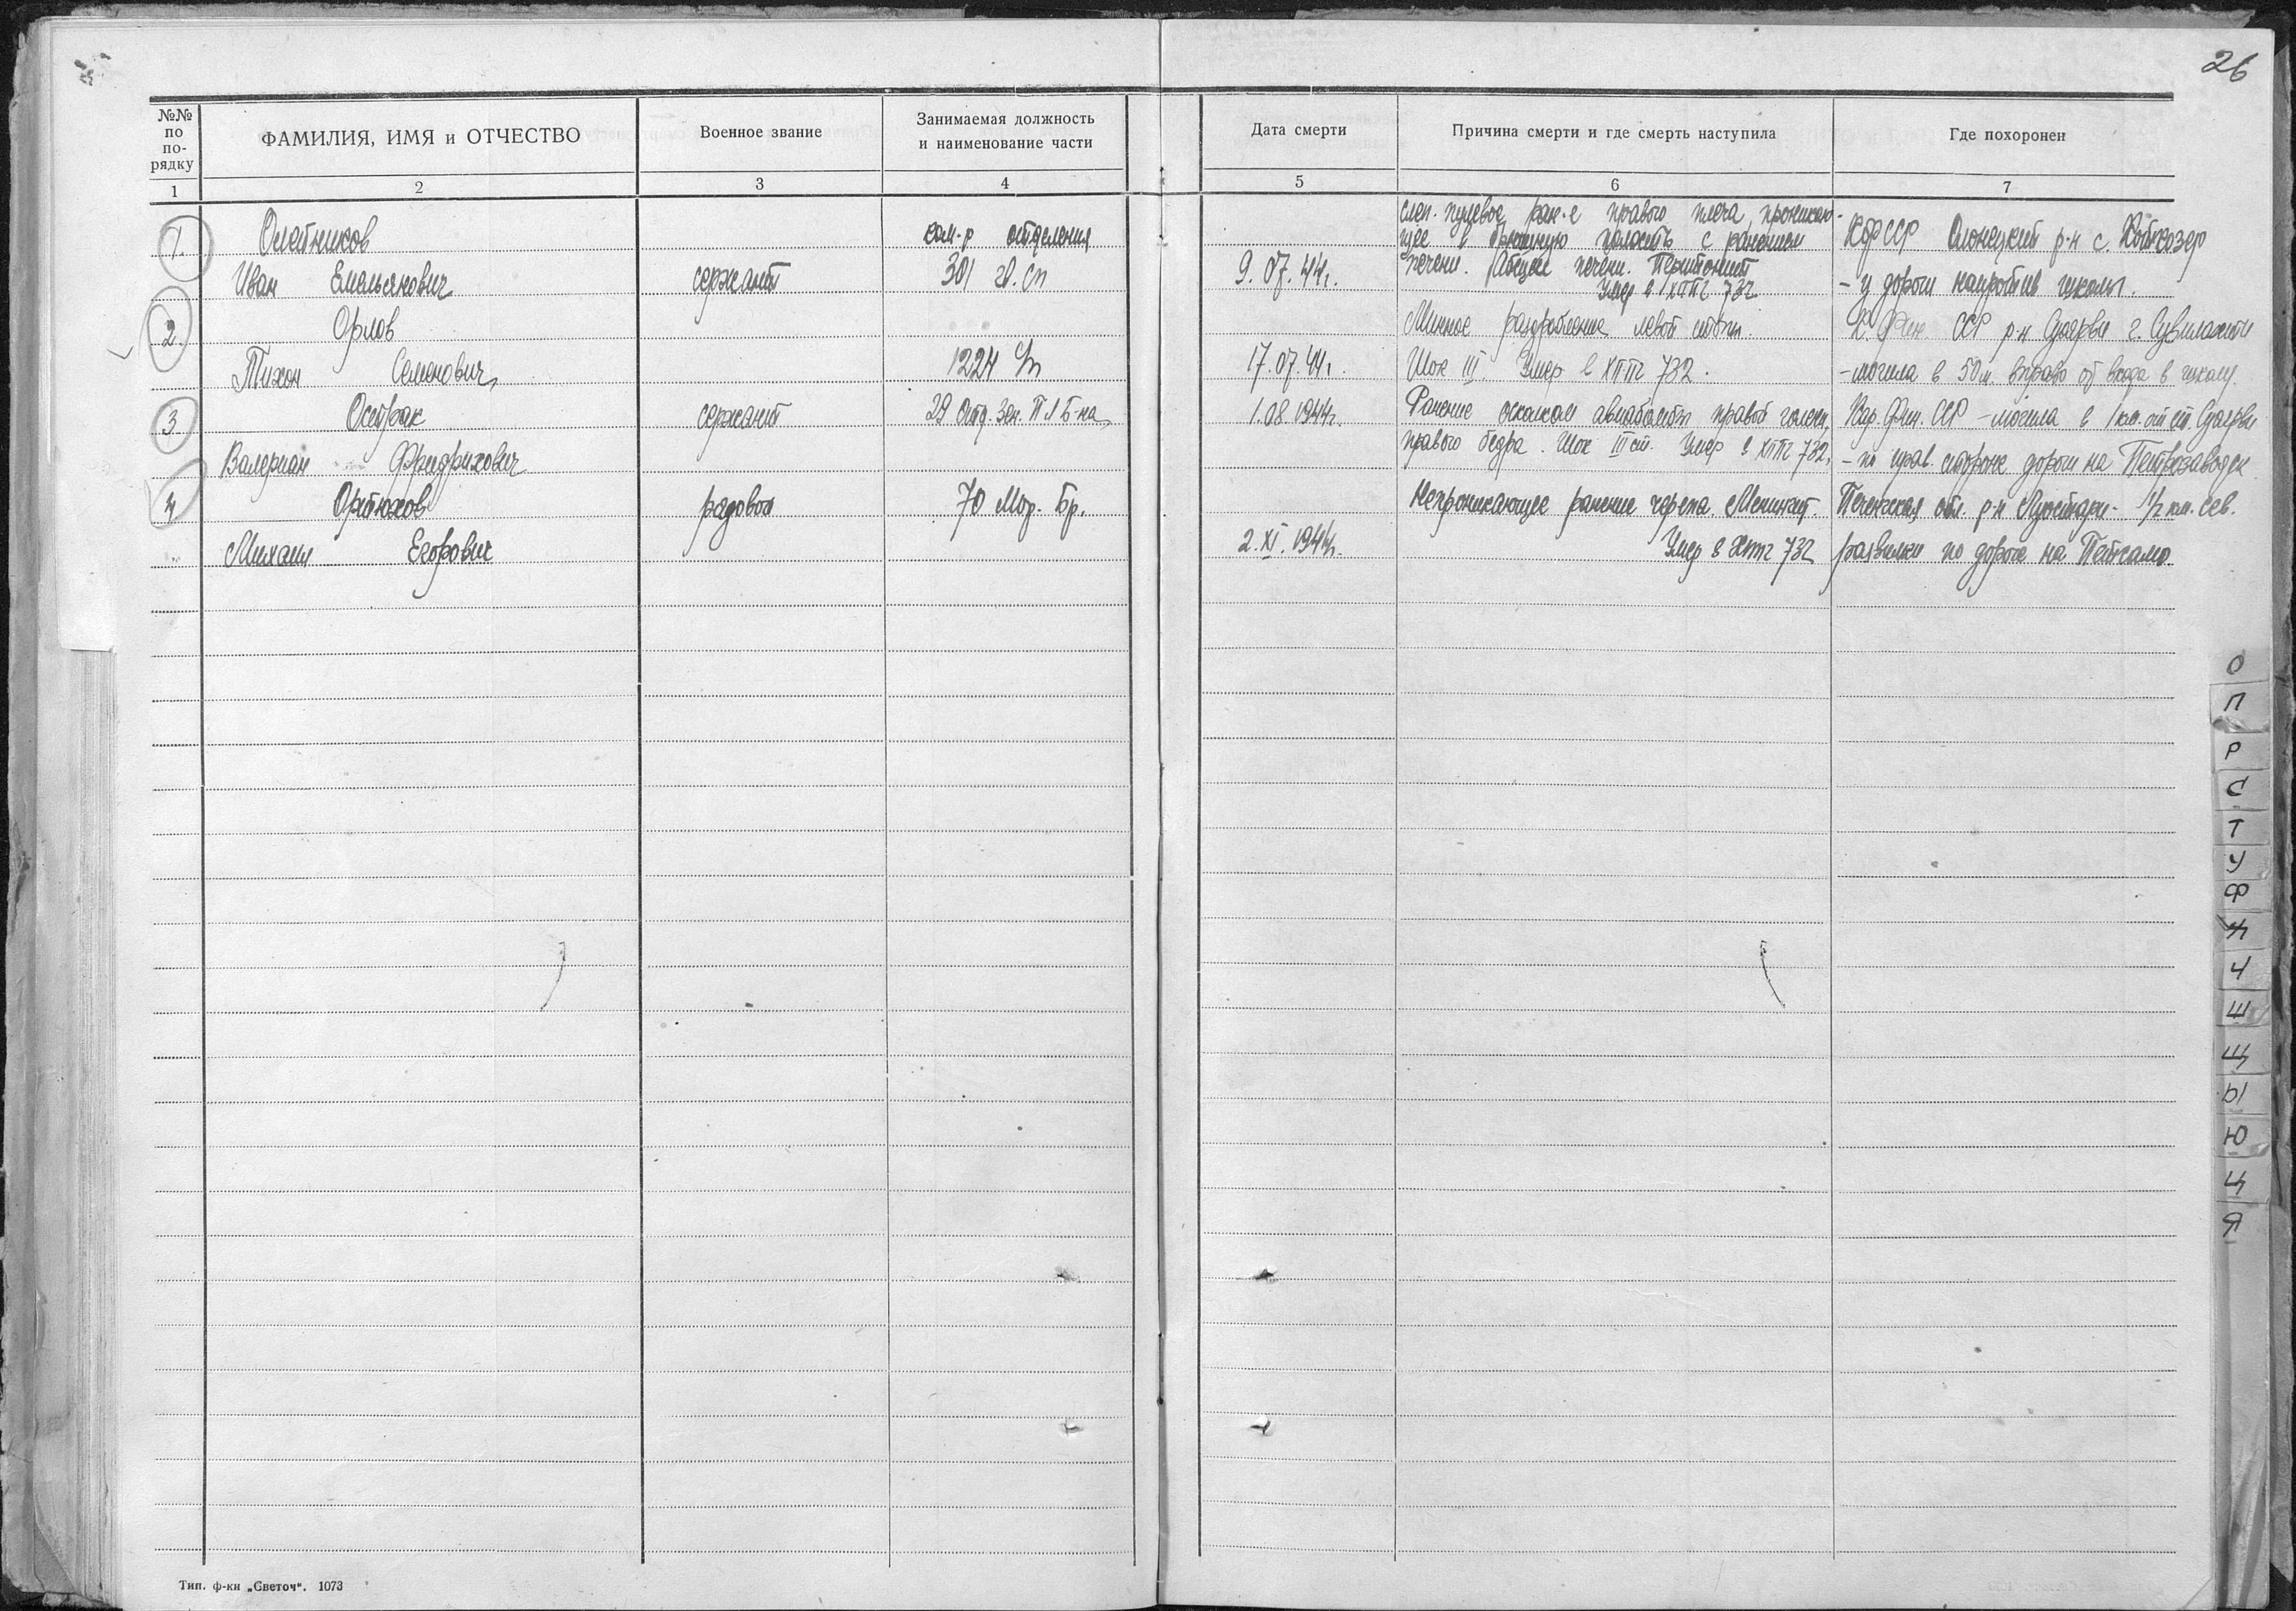 26
№№ по по- рядку
ФАМИЛИЯ, ИМЯ и ОТЧЕСТВО
Военное звание
Занимаемая должность и наименование части
Дата смерти
Причина смерти и где смерть наступила
Где похоронен
1 2 3 4 5 6 7
1. Олейников
Иван Емельянович
сержант
ком-р отделения
301 гв. сп
9.07.44г.
слеп. пулевое ран-е правого плеча, проникаю-
щее в брюшную полость с ранением
печени. Абсцесс печени. Перитонит
Умер в ХППГ 732
КФССР Олонецкий р-н с. Койткозеро
- у дороги напротив школы.
2. Орлов
Тихон Семенович
1224 сп
17.07.44г.
Минное раздробление левой стопы.
Шок III. Умер в ХППГ 732.
К. Фин. ССР р-н Суоярви г. Сувилахти
- могила в 50 м. вправо от входа в школу.
3. Острак
Валериан Фридрихович
сержант
29 Отд. Зен. П Л Б-на
1.08.1944г.
Ранение осколком авиабомбы правой голени,
правого бедра. Шок III ст. Умер в ХППГ 732.
Кар. Фин. ССР - могила в 1 км. от ст. Суоярви
- по прав. стороне дороги на Петрозаводск
4 Ортюхов
Михаил Егорович
рядовой
70 Мор. Бр.
2.XI.1944г.
Непроникающее ранение черепа. Менингит.
Умер в ХППГ 732
Печенгская обл. р-н Луостари - 1/2 км. сев.
развилки по дороге на Петсамо
О
П
Р
С
Т
У
Ф
Ч
Ш
Щ
Ы
Ю
Ц
Я
Тип. ф-ки „Светоч“. 1073